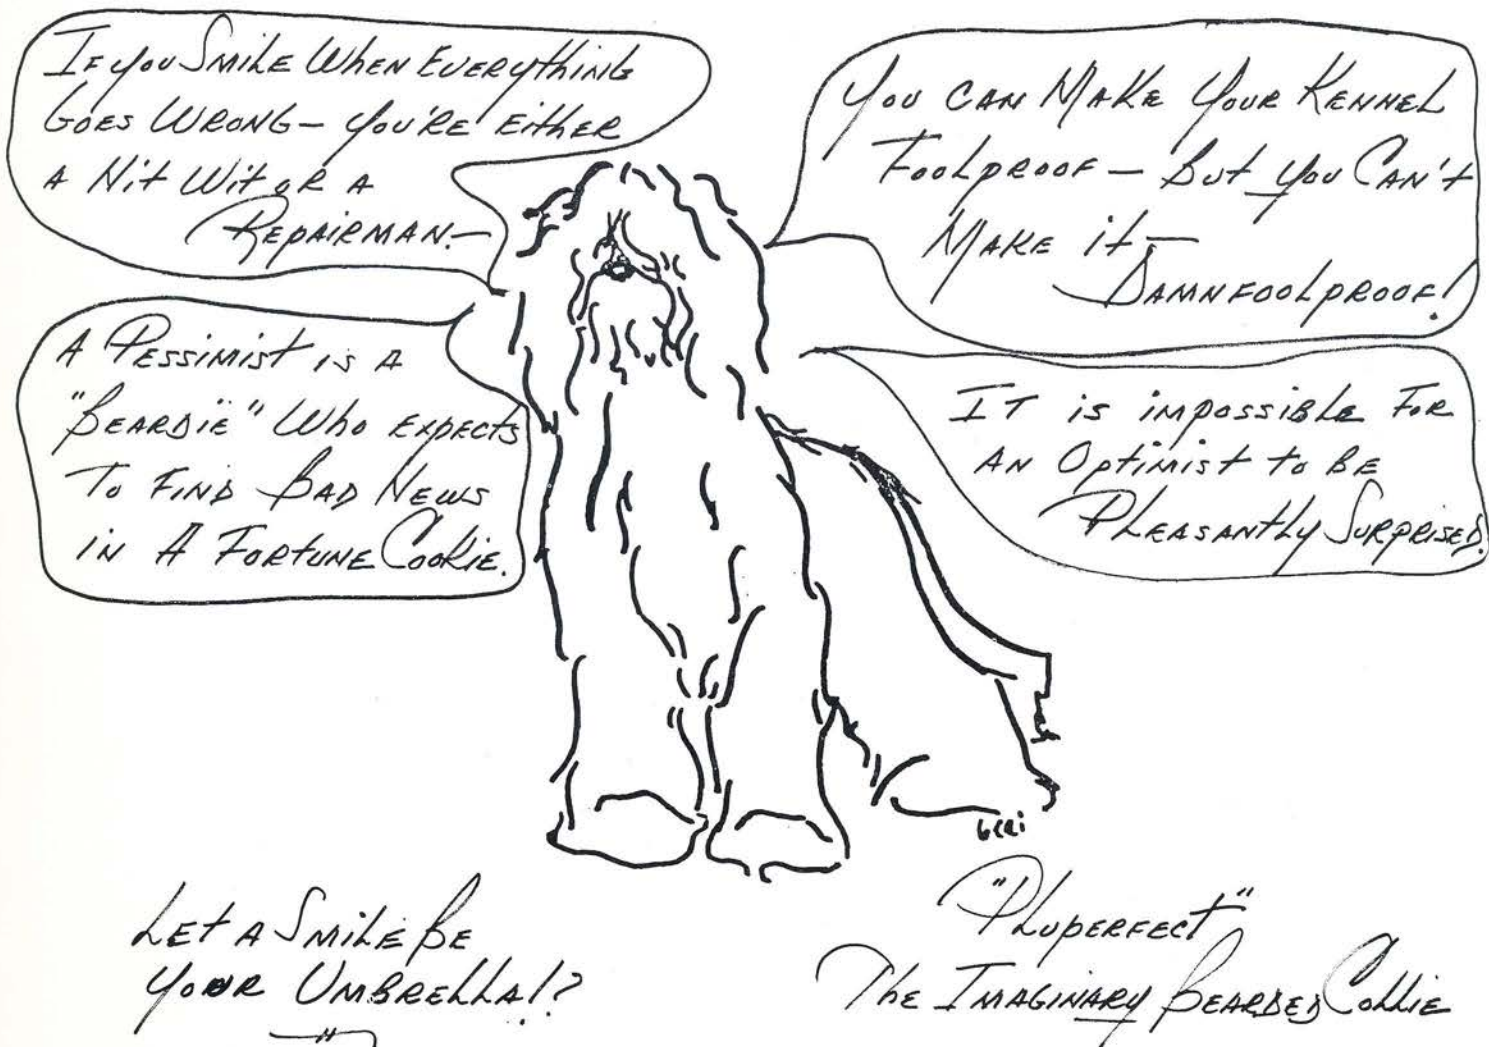 If you Smile When Everything
Goes Wrong - you're either
a Nit Wit or a
Repairman.-
You can Make Your Kennel
Foolproof - But you Can't
Make it -
Damnfoolproof!
A Pessimist is a
"Beardie" Who expects
To Find Bad News
in A Fortune Cookie.
It is impossible For
an Optimist to be
Pleasantly Surprised.
Let a Smile Be
Your Umbrella!?
"Pluperfect"
The Imaginary Bearded Collie